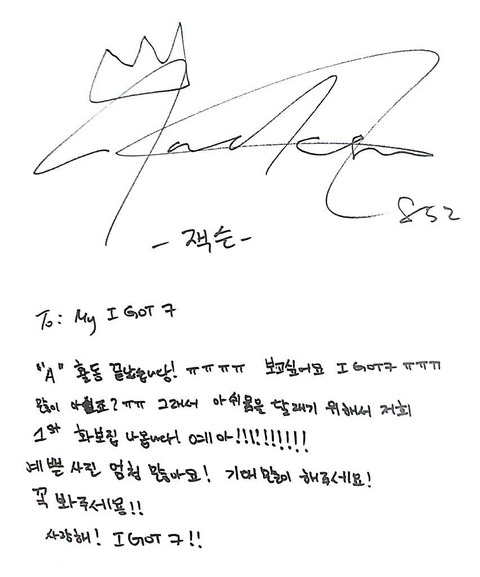 Jackson
852
- 잭슨 -
To: My I GOT 7
"A" 활동 끝났습니당! ㅠㅠㅠㅠ 보고싶어요 I GOT7 ㅠㅠㅠ
많이 아쉽죠? ㅠㅠ 그래서 아쉬움을 달래기 위해서 저희
1st 화보집 나옵니다! 예아!!!!!!!!!!
예쁜 사진 엄청 많아요! 기대 많이 해주세요!
꼭 봐주세용!!
사랑해! I GOT 7!!